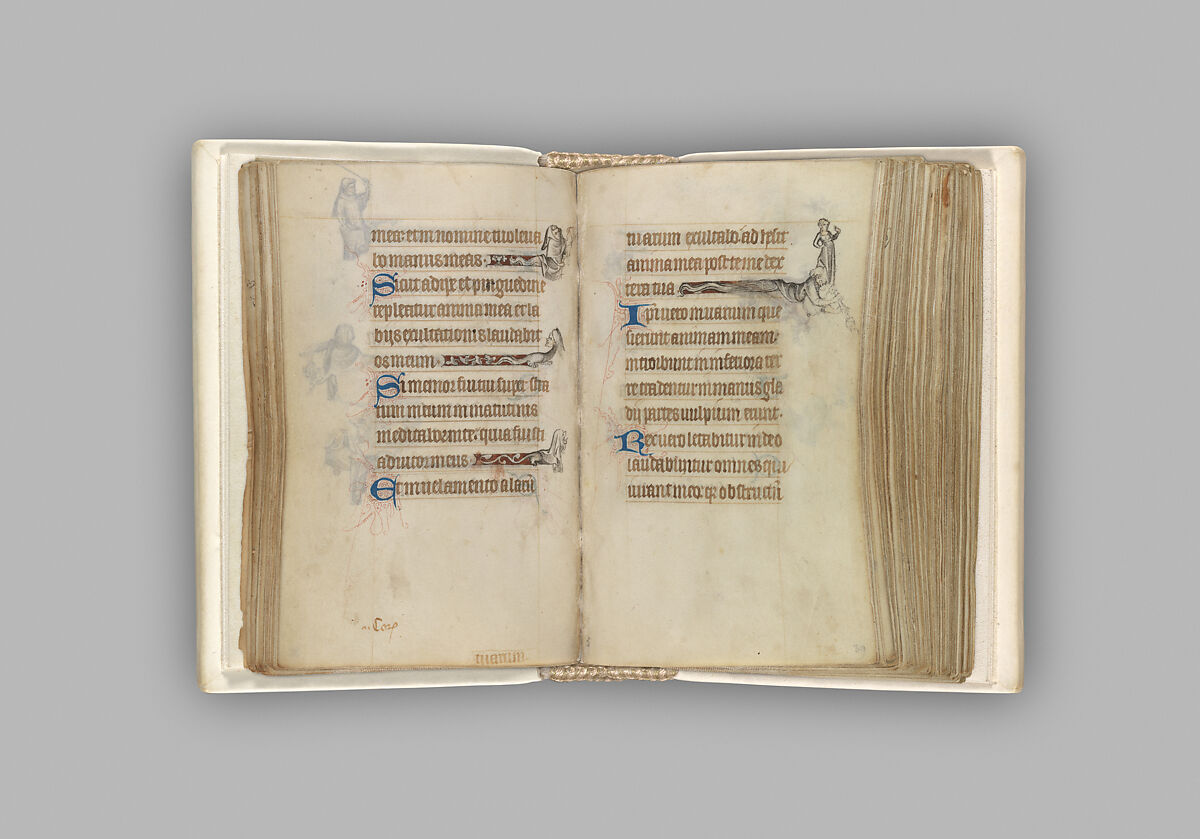 mea: et in nomine tuo leua
bo manus meas.
Sicut adipe et pinguedine
repleatur anima mea et la
biis exultationis laudabit
os meum
Si memor fui tui super stra
tum meum in matutinis
meditabor in te: quia fuisti
adiutor meus
Et in uelamento alarum
corr
tuarum
tuarum exultabo ad hesit
anima mea post te me dex
tera tua
Ipsi uero in uanum que
sierunt animam meam:
introibunt in inferiora ter
re tradentur in manus gla
dii partes uulpium erunt.
Rex uero letabitur in deo
laudabuntur omnes qui
iurant in eo: quia obstructum